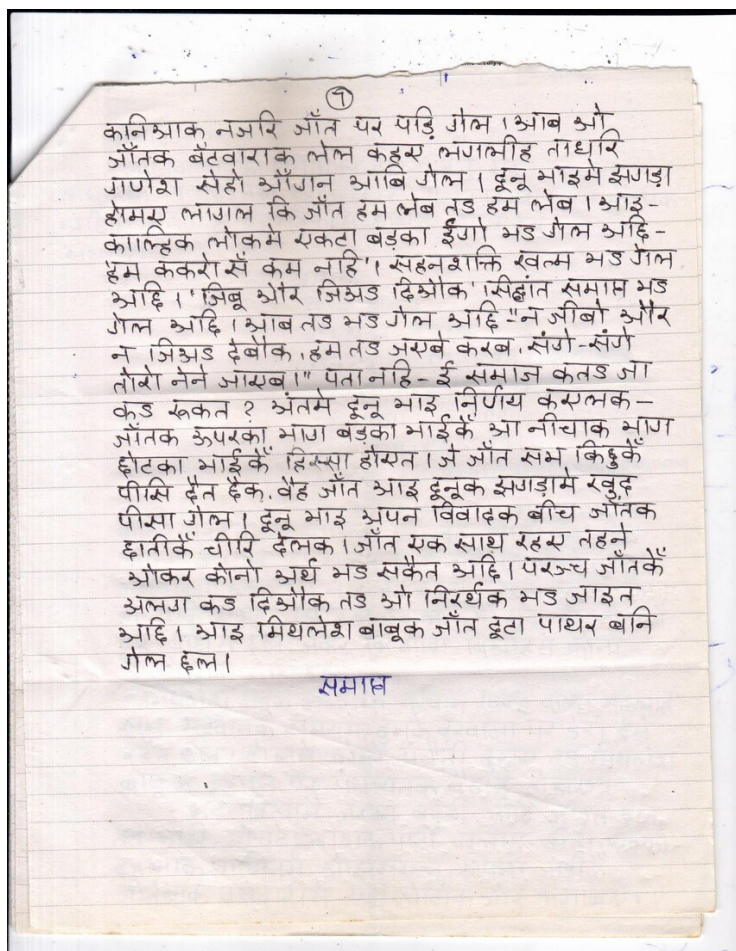 ७
कनिआक नजरि जाँत पर पड़ि गेल । आब ओ
जाँतक बँटवाराक लेल कहए लगलीह ताधरि
गणेश सेहो आँगन आबि गेल । दूनू भाइमे झगड़ा
होमए लागल कि जाँत हम लेब तऽ हम लेब । आइ-
काल्हिक लोकमे एकटा बड़का ईगो भऽ गेल अछि-
हम ककरो सँ कम नहि' । सहनशक्ति खत्म भऽ गेल
अछि । 'जिबू और जिअऽ दिऔक' । सिद्धांत समाप्त भऽ
गेल अछि । आब तऽ भऽ गेल अछि-"न जीबो और
न जिअऽ देबौक, हम तऽ जएबे करब, संगे-संगे
तोरो नेने जाएब ।" पता नहि-ई समाज कतऽ जा
कऽ रूकत ? अंतमे दूनू भाइ निर्णय कएलक-
जाँतक ऊपरका भाग बड़का भाईकेँ आ नीचाक भाग
छोटका भाईकेँ हिस्सा होएत । जे जाँत सभ किछुकेँ
पीसि दैत छैक, वैह जाँत आइ दूनूक झगड़ामे खुद
पीसा गेल । दूनू भाइ अपन विवादक बीच जाँतक
छातीकेँ चीरि देलक । जाँत एक साथ रहए तहने
ओकर कोनो अर्थ भऽ सकैत अछि । परञ्च जाँतकेँ
अलग कऽ दिऔक तऽ ओ निरर्थक भऽ जाइत
अछि । आइ मिथलेश बाबूक जाँत दूटा पाथर बनि
गेल छल ।
समाप्त